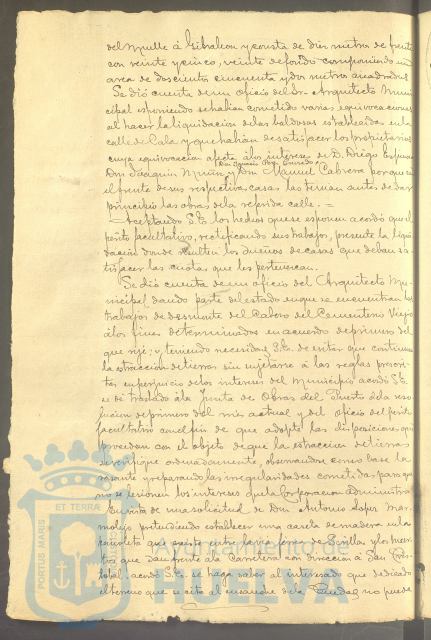 del Muelle á Gibraleon y consta de diez metros de frente
con veinte y cinco, veinte de fondo componiendo un
area de doscientos cincuenta y dos metros cuadrados
Se dió cuenta de un oficio del Sr. Arquitecto Muni
cipal esponiendo se habian cometido varias equivocaciones
al hacer la liquidacion de las baldosas establecidas en la
calle de Cala y que habian de satisfacer los propietarios
cuya equivocacion afecta á los intereses de D. Diego
Don Joaquin y Don Manuel Cabrera porque en
el frente de sus respectivas casas las tenian antes de dar
principio las obras de la referida calle.=
Aceptando S.E. los hechos que se esponen acordó que el
perito facultativo, rectificando sus trabajos, presente la liqui
dacion donde resulten los dueños de casas que deban sa
tisfacer las cuotas que les pertenezcan.
Se dió cuenta de un oficio del Arquitecto Mu
nicipal dando parte del estado en que se encuentran los
trabajos de desmonte del Cabezo del Cementerio Viejo
á los fines determinados en acuerdo de primero del
que rije; y teniendo necesidad S.E. de evitar que continue
la estraccion de tierras sin sujetarse á las reglas prescri
tas en perjuicio de los intereses del Municipio acordó S.E.
se dé traslado á la Junta de Obras del Puerto de la reso
lucion de primero del mes actual y del oficio del perito
facultativo con el fin de que adopte las disposiciones que
procedan con el objeto de que la estraccion de tierras
se verifique ordenadamente, observandose como base la
rasante y reparando las irregularidades cometidas para que
no se lesionen los intereses que la Corporacion administra
En vista de una solicitud de Don Antonio Lopez Mar
molejo pretendiendo establecer una caseta de madera en la
que existe entre la via ferrea de Sevilla y los huer
tos que dan frente á la Carretera con direccion á San Cris
tobal, acordó S.E. se haga saber al interesado que dedicado
el terreno que se cita al ensanche de la Ciudad no puede
PORTUS MARIS ET TERRAE
Ayuntamiento de
HUELVA